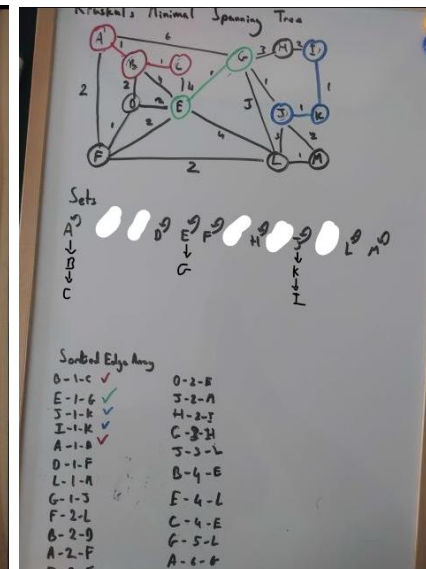 Kruskal's Minimal Spanning Tree
A 6 G 3 H 2 I
1 B 1 C
2 2 4 4 1 1 5 1
D 2 E J 1 K
1 2 4 3 2
F 2 L 1 M
Sets
A D E F H J L M
B G K
C I
Sorted Edge Array
B-1-C ✓
E-1-G ✓
J-1-K ✓
I-1-K ✓
A-1-B ✓
D-1-F
L-1-M
G-1-J
F-2-L
B-2-D
A-2-F
D-2-E
J-2-M
H-2-I
G-3-H
J-3-L
B-4-E
E-4-L
C-4-E
G-5-L
A-6-G